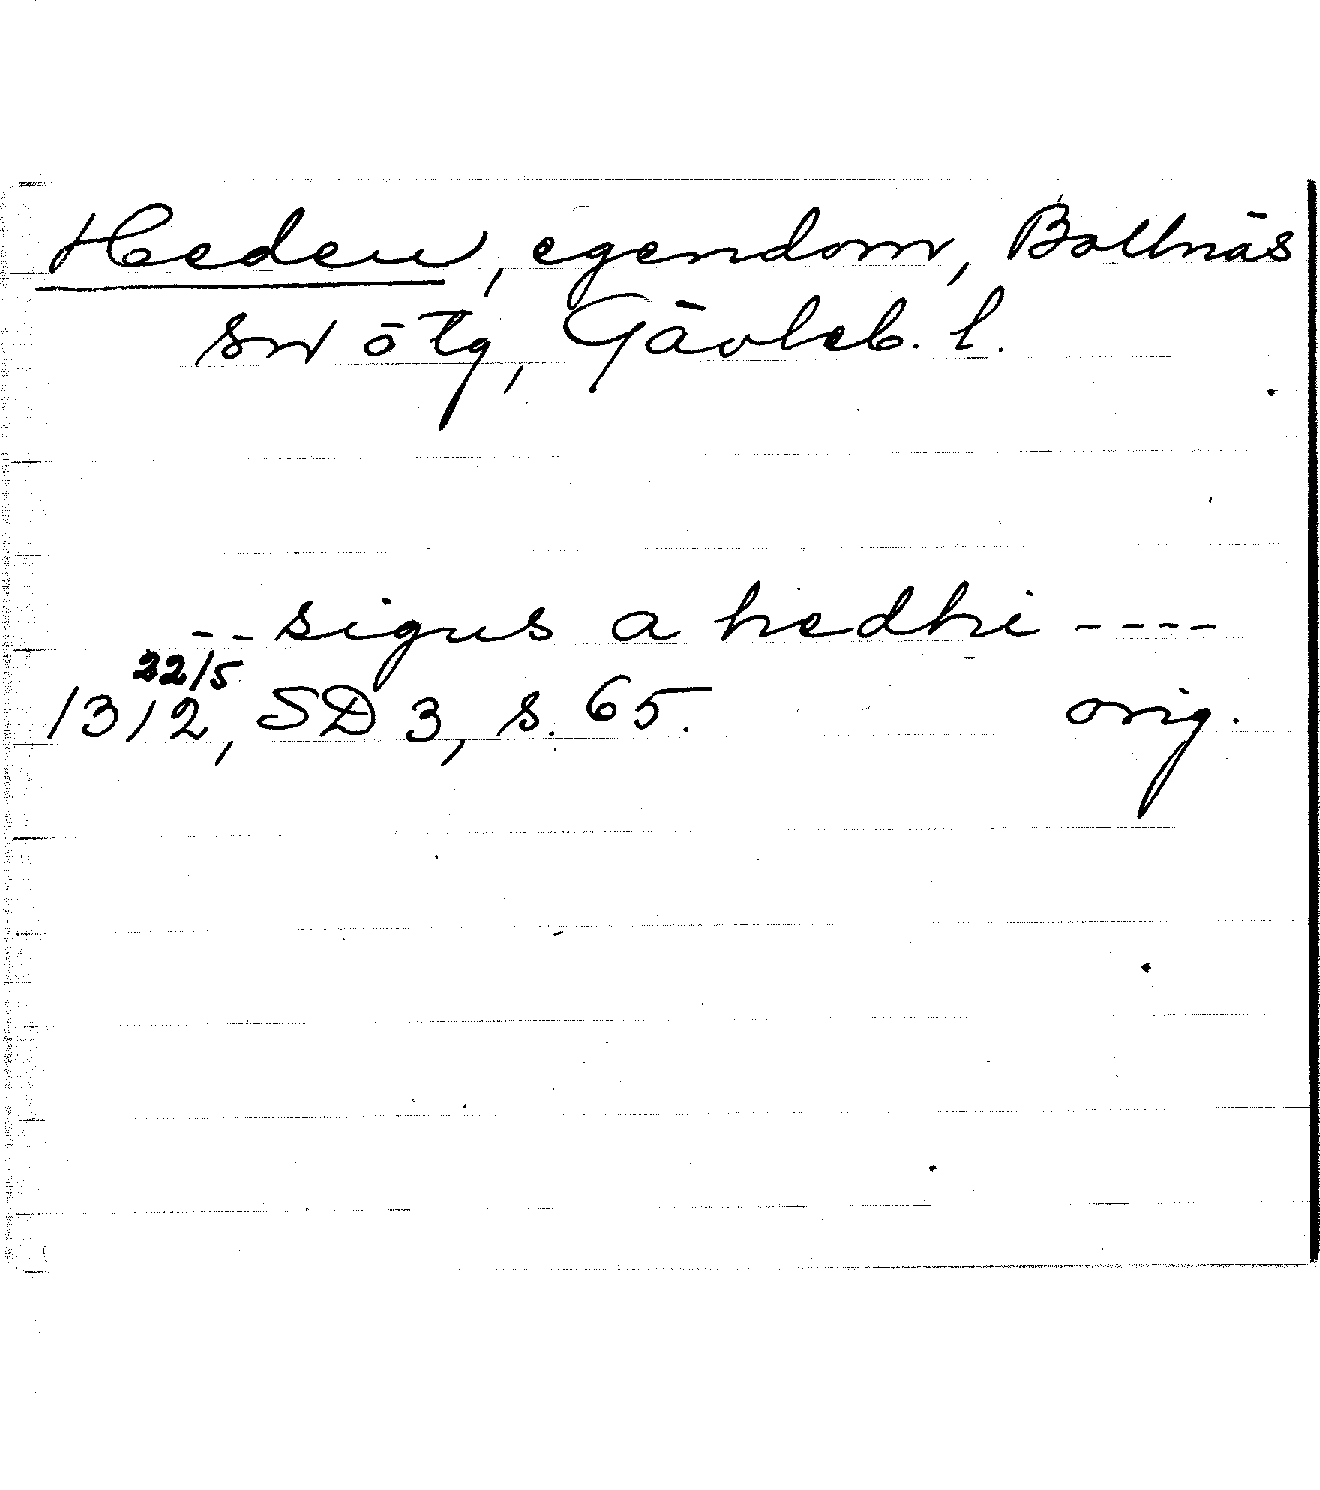 Heden, egendom, Bollnäs
sn o tg, Gävleb. l.
-- sigus a hedhi ----
22/5
1312, SD 3, s. 65. orig.